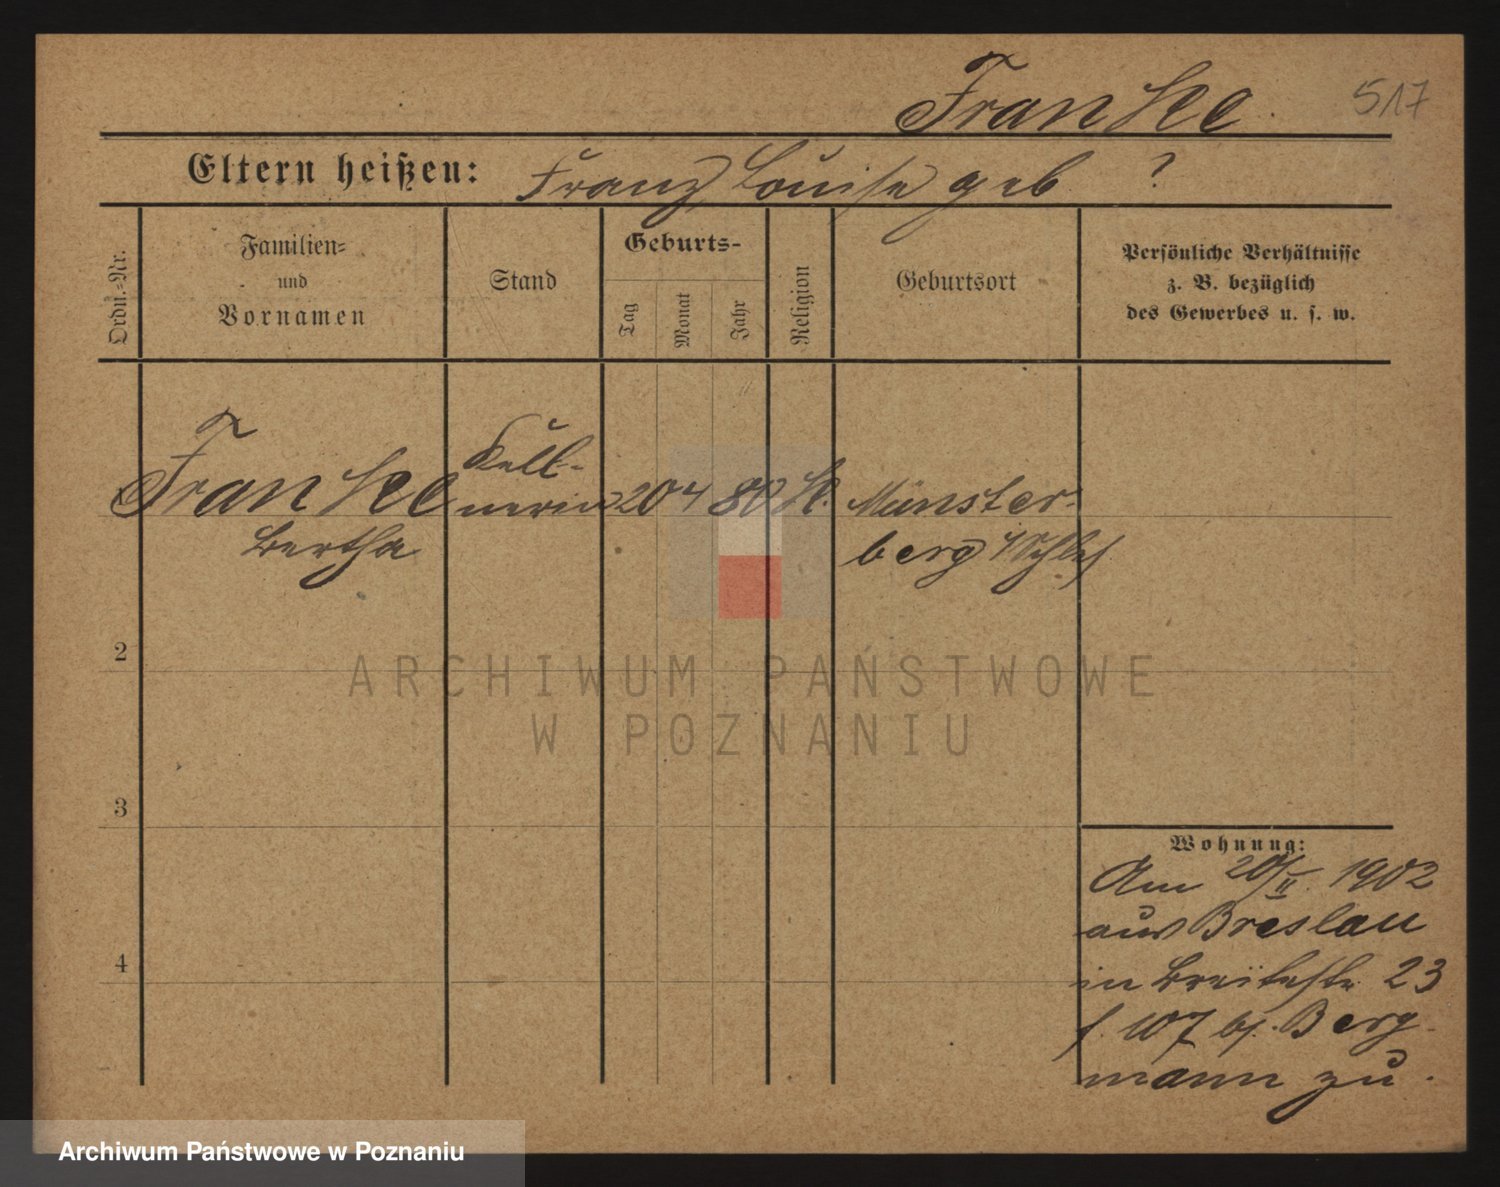 Franske.
517
Eltern heißen: Franz Louise geb ?
Ordn.-Nr.
Familien-
und
Vornamen
Stand
Geburts-
Tag
Monat
Jahr
Religion
Geburtsort
Persönliche Verhältnisse
z. B. bezüglich
des Gewerbes u. s. w.
Kell-
nerin
20 4 80 Münster-
Bertha
berg /Schles
2
ARCHIWUM PAŃSTWOWE
W POZNANIU
3
Wohnung:
Am 20/II. 1902
aus Breslau
4
in Breitestr. 23
f. 107 bj. Berg-
mann zu.
Archiwum Państwowe w Poznaniu